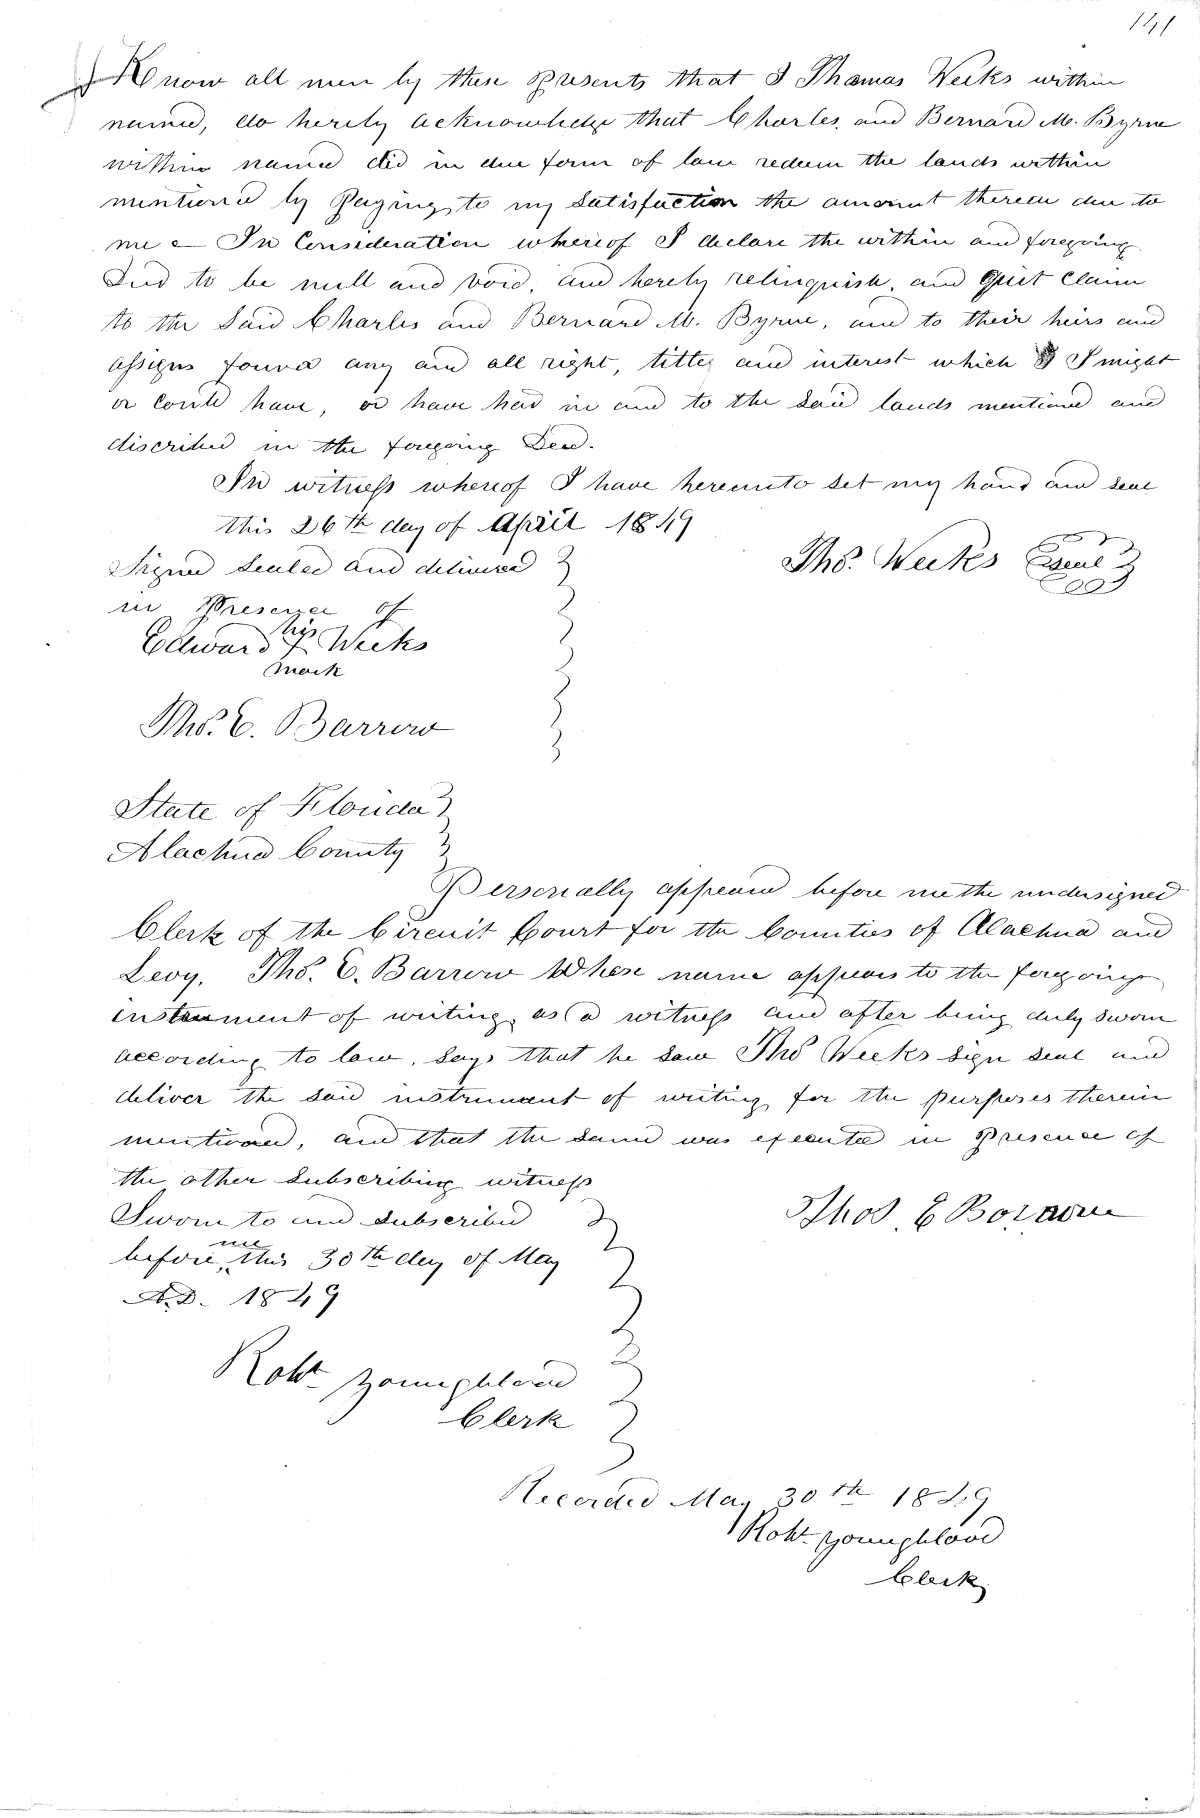 141
Know all men by these presents that I Thomas Weeks within
named, do hereby acknowledge that Charles and Bernard M. Byrne
within named did in due form of law redeem the lands within
mentioned by paying to my satisfaction the amount therein due to
me – In Consideration whereof I declare the within and foregoing
Deed to be null and void, and hereby relinquish, and quit claim
to the said Charles and Bernard M. Byrne, and to their heirs and
assigns any and all right, title, and interest which I might
or could have, or have had in and to the said lands mentioned and
discribed in the foregoing Deed.
In witness whereof I have hereunto set my hand and seal
this 26th day of April 1849
Thos. Weeks seal
Signed sealed and delivered
in Presence of
his
Edward Weeks
mark
Thos. E. Barrow
State of Florida
Alachua County
Personally appeared before me the undersigned
Clerk of the Circuit Court for the Counties of Alachua and
Levy, Thos. E. Barrow Whose name appears to the foregoing
instrument of writing, as a witness and after being duly sworn
according to law, says that he saw Thos Weeks sign seal and
deliver the said instrument of writing for the purposes therein
mentioned, and that the same was executed in presence of
the other subscribing witness
Thos. E
Sworn to and subscribed
me
before this 30th day of May
A.D. 1849
Robt Youngblood
Clerk
Recorded May 30th 1849
Robt Youngblood
Clerk